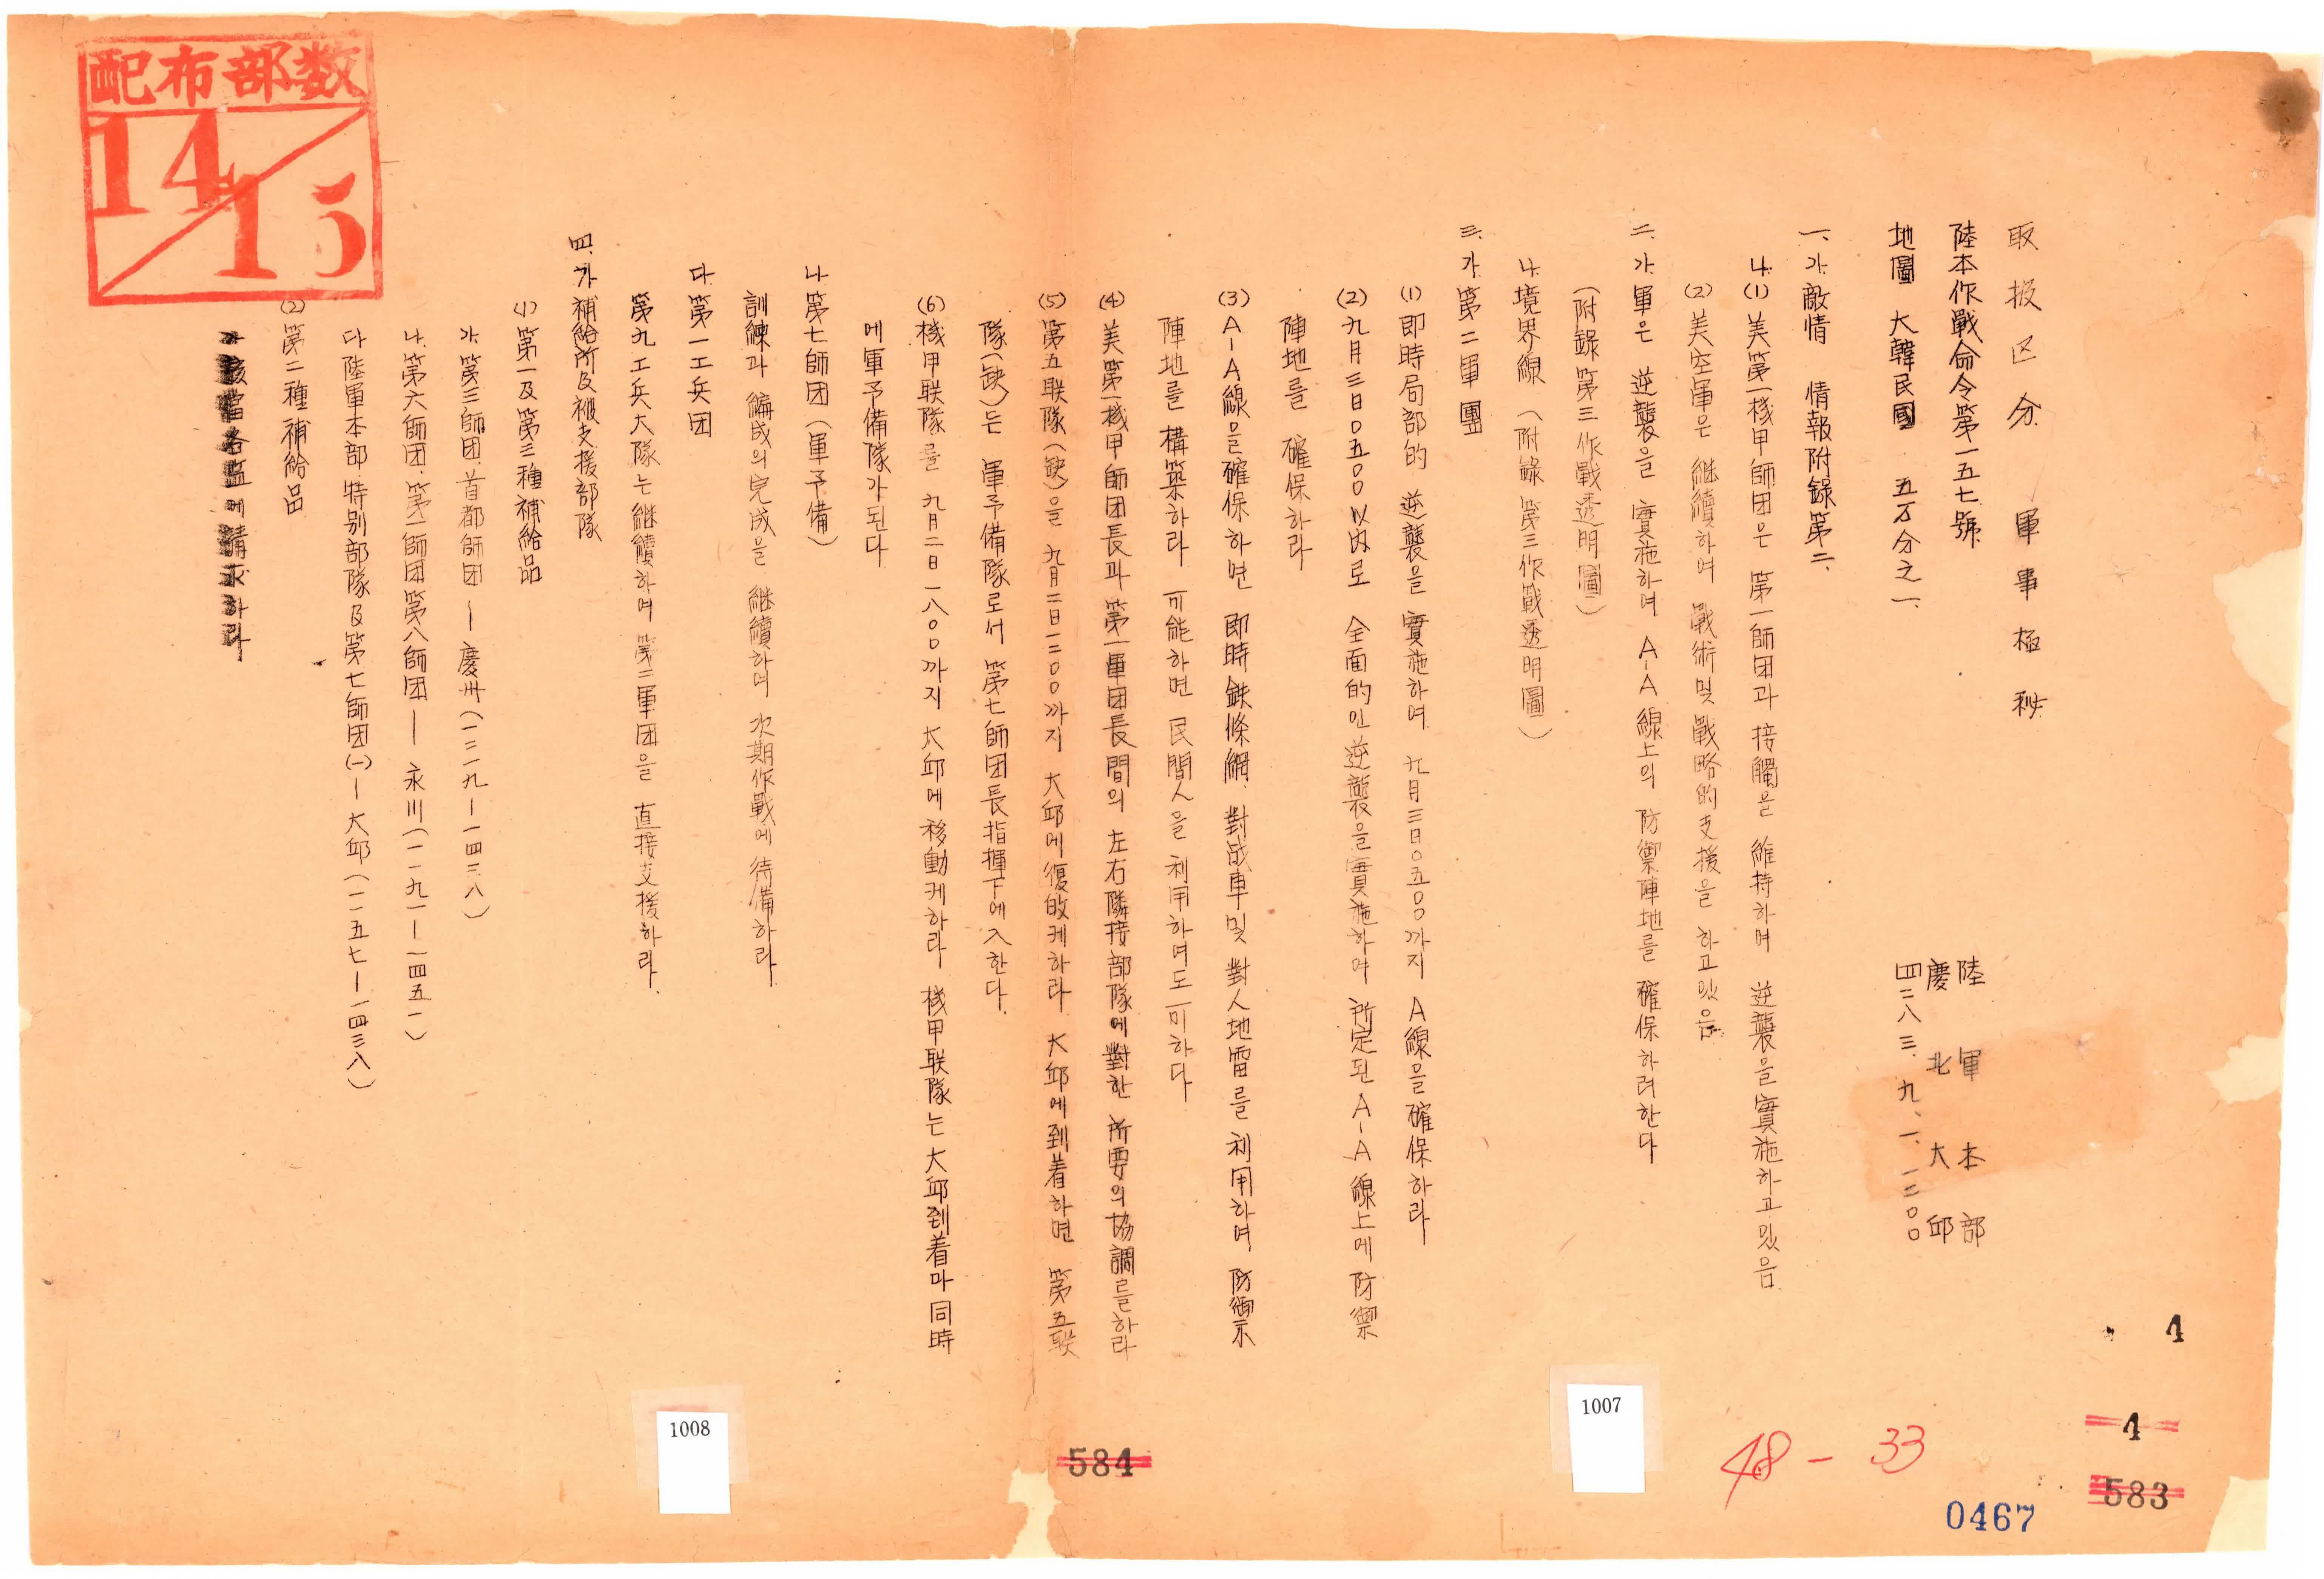 取扱区分 軍事極秘
陸本作戰命令第一五七號
陸軍本部
慶北大邱
四二八三.九.一.一二〇〇
地圖 大韓民國 五万分之一.
一.가.敵情 情報附錄第二.
나.(1)美第一機甲師団은 第一師団과 接觸을 維持하며 逆襲을 實施하고 있음
(2)美空軍은 継續하여 戰術 및 戰略的支援을 하고 있음.
二.가.軍은 逆襲을 實施하며 A-A 線上의 防禦陣地를 確保하려한다
(附錄第三作戰透明圖)
나.境界線 (附錄第三作戰透明圖)
三.가.第二軍團
(1)即時局部的 逆襲을 實施하며 九月三日〇五〇〇까지 A線을確保하라
(2)九月三日〇五〇〇以內로 全面的인逆襲을實施하여 所定된 A-A 線上에防禦
陣地를 確保하라
(3)A-A線을確保하면 即時鉄條網.對战車및 對人地雷를 利用하며 防禦
陣地를 構築하라 可能하면 民間人을 利用하며도 可하다
(4)美第一機甲師団長과 第一軍団長間의 左右隣接部隊에對한 所要의協調를하라
(5)第五联隊(缺)을 九月二日一二〇〇까지 大邱에復皈케하라 大邱에到着하면 第五联
隊(缺)는 軍予備隊로서 第七師団長指揮下에入한다.
(6)機甲联隊를 九月二日一八〇〇까지 大邱에移動케하라 機甲联隊는大邱到着과同時
에軍予備隊가된다
나.第七師団(軍予備)
訓練과 編成의完成을 継續하며 次期作戰에待備하라
다.第一工兵団
第九工兵大隊는継續하며 第二軍団을 直接支援하라.
四.가.補給所及被支援部隊
(1)第一及第三種補給品
가.第三師団.首都師団 — 慶州(一二一九—一四三八)
나.第六師団.第一師団第八師団 — 永川(一一九一—一四五一)
다.陸軍本部特別部隊及第七師団(一)—大邱(一一五七—一四三八)
(2)第二種補給品
該當各監에請求하라
配布部数
14/15
4
4
583
584
1007
1008
48-33
0467